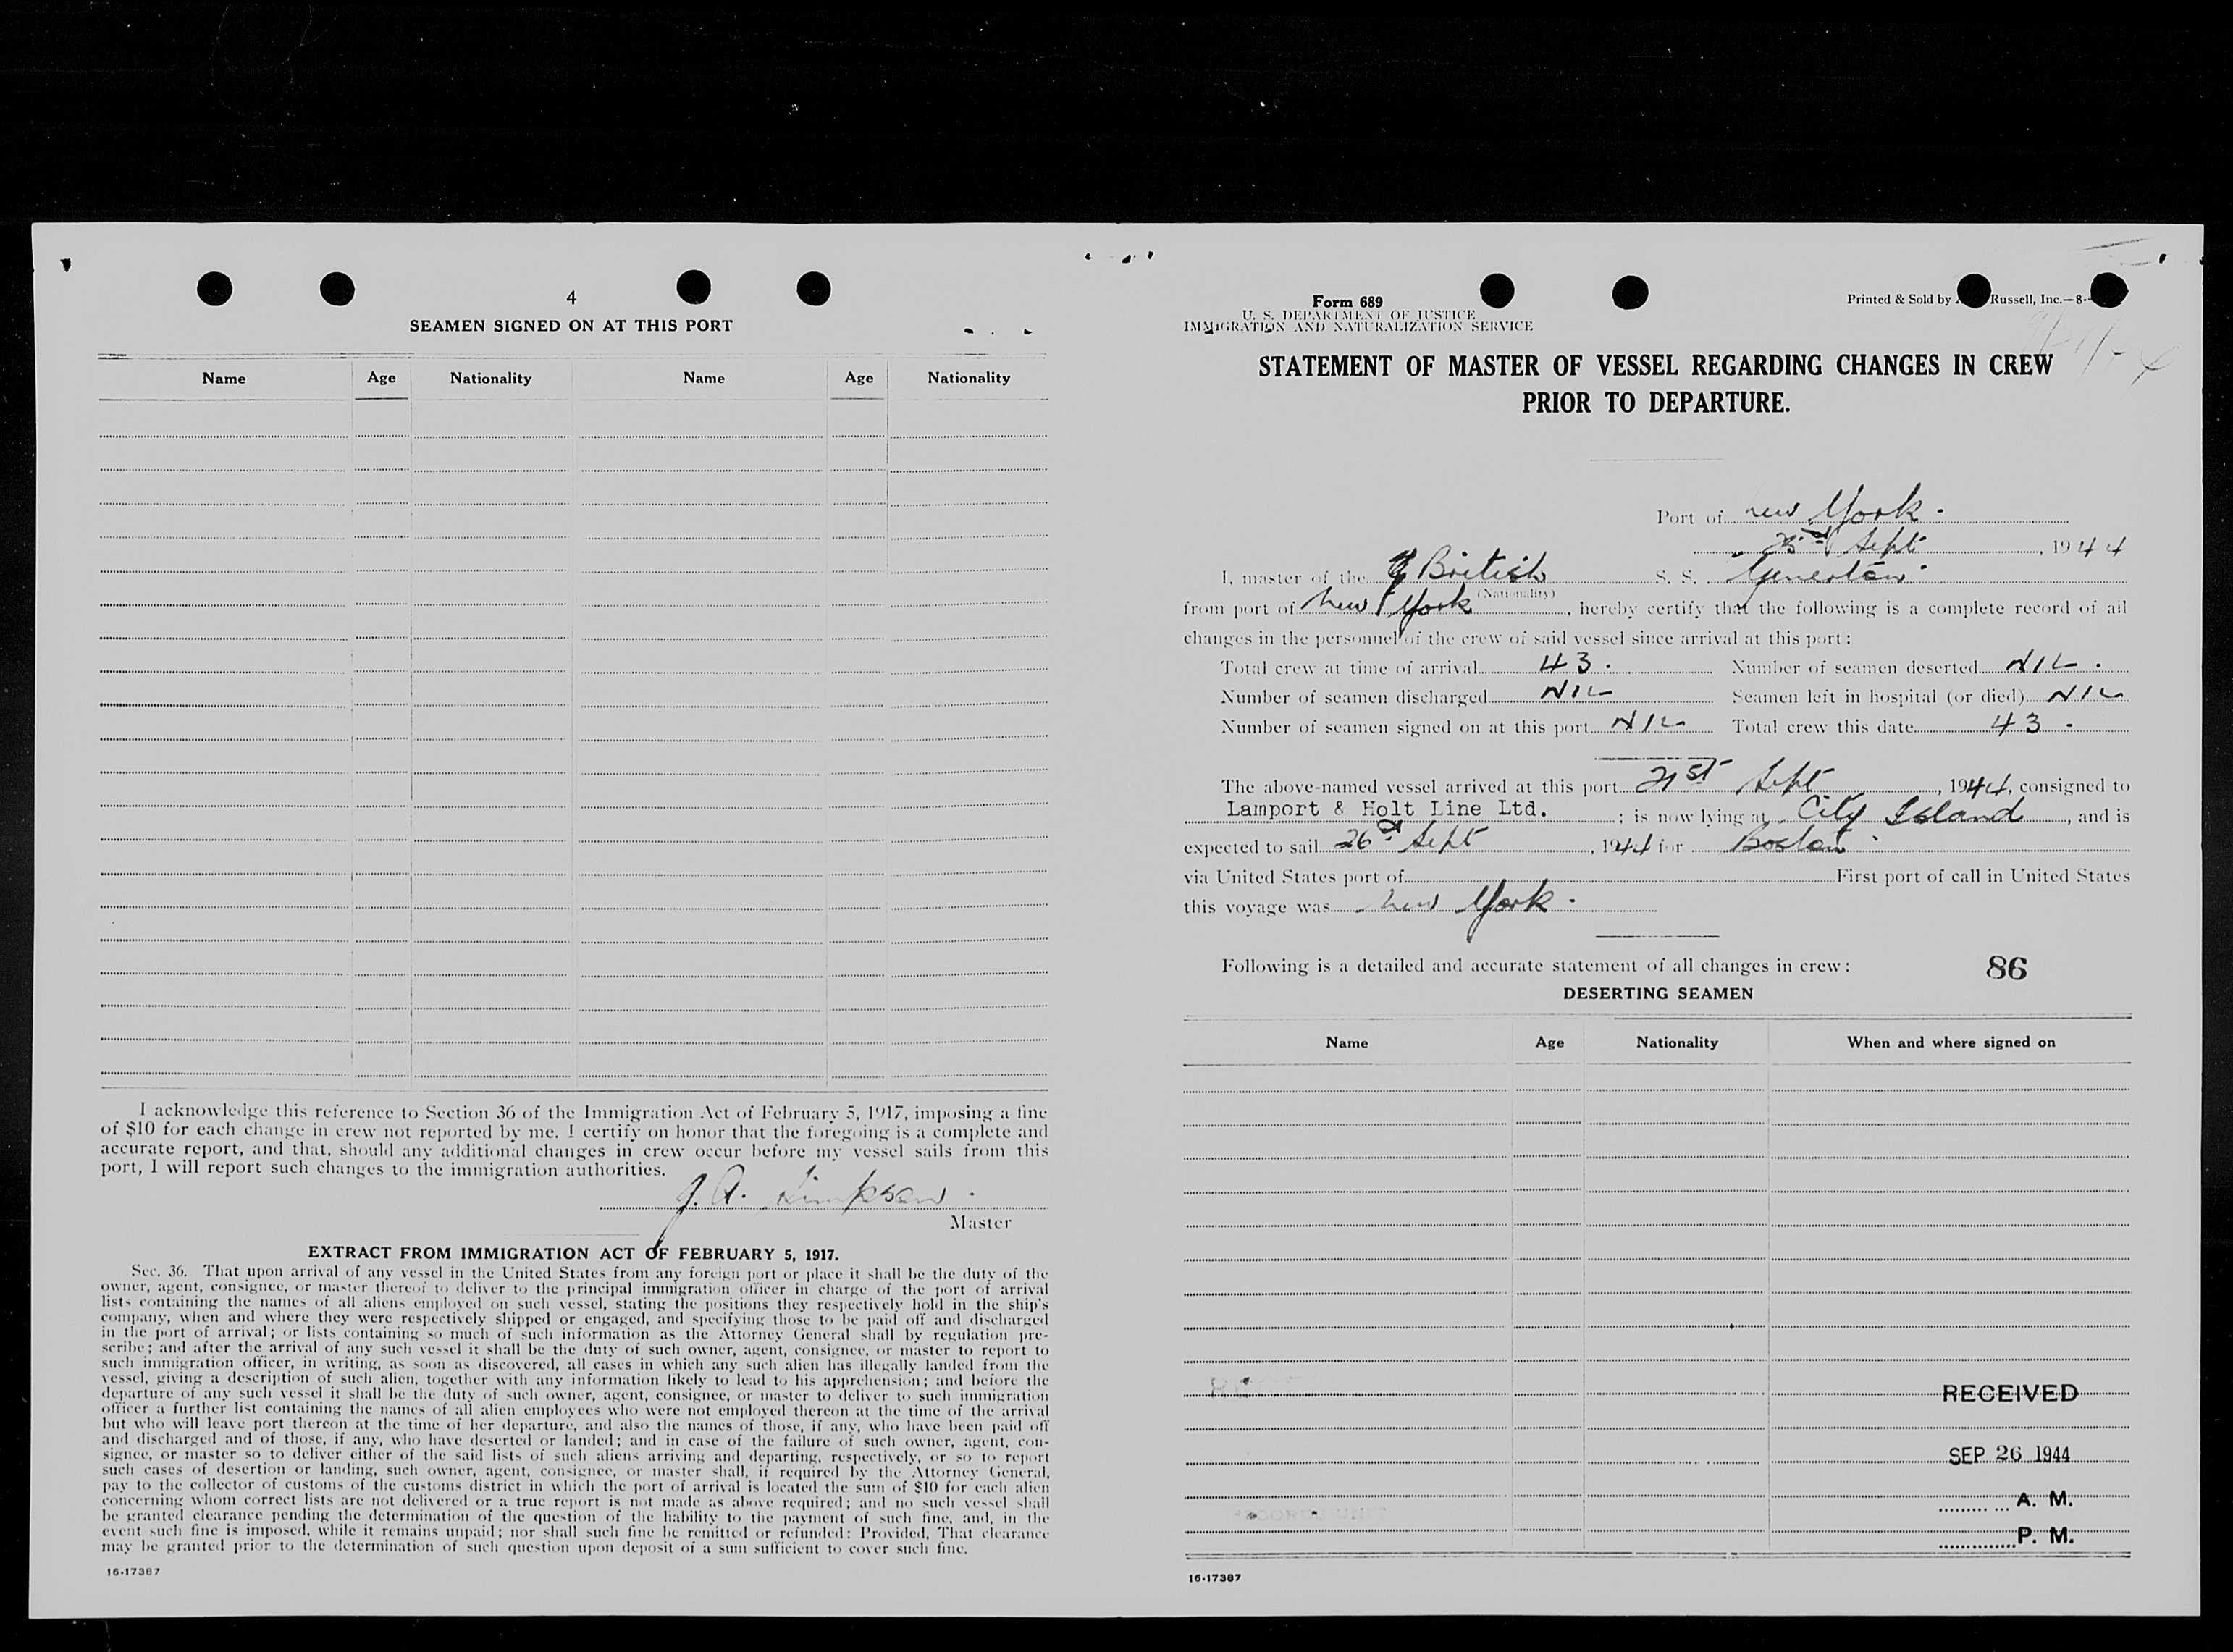 4
SEAMEN SIGNED ON AT THIS PORT
Name Age Nationality Name Age Nationality
I acknowledge this reference to Section 36 of the Immigration Act of February 5, 1917, imposing a fine
of $10 for each change in crew not reported by me. I certify on honor that the foregoing is a complete and
accurate report, and that, should any additional changes in crew occur before my vessel sails from this
port, I will report such changes to the immigration authorities.
J. A. Simpson.
Master
EXTRACT FROM IMMIGRATION ACT OF FEBRUARY 5, 1917.
Sec. 36. That upon arrival of any vessel in the United States from any foreign port or place it shall be the duty of the
owner, agent, consignee, or master thereof to deliver to the principal immigration officer in charge of the port of arrival
lists containing the names of all aliens employed on such vessel, stating the positions they respectively hold in the ship's
company, when and where they were respectively shipped or engaged, and specifying those to be paid off and discharged
in the port of arrival; or lists containing so much of such information as the Attorney General shall by regulation pre-
scribe; and after the arrival of any such vessel it shall be the duty of such owner, agent, consignee, or master to report to
such immigration officer, in writing, as soon as discovered, all cases in which any such alien has illegally landed from the
vessel, giving a description of such alien, together with any information likely to lead to his apprehension; and before the
departure of any such vessel it shall be the duty of such owner, agent, consignee, or master to deliver to such immigration
officer a further list containing the names of all alien employees who were not employed thereon at the time of the arrival
but who will leave port thereon at the time of her departure, and also the names of those, if any, who have been paid off
and discharged and of those, if any, who have deserted or landed; and in case of the failure of such owner, agent, con-
signee, or master so to deliver either of the said lists of such aliens arriving and departing, respectively, or so to report
such cases of desertion or landing, such owner, agent, consignee, or master shall, if required by the Attorney General,
pay to the collector of customs of the customs district in which the port of arrival is located the sum of $10 for each alien
concerning whom correct lists are not delivered or a true report is not made as above required; and no such vessel shall
be granted clearance pending the determination of the question of the liability to the payment of such fine, and, in the
event such fine is imposed, while it remains unpaid; nor shall such fine be remitted or refunded: Provided, That clearance
may be granted prior to the determination of such question upon deposit of a sum sufficient to cover such fine.
16-17387
Form 689
Printed & Sold by Russell, Inc.—8-
U. S. DEPARTMENT OF JUSTICE
IMMIGRATION AND NATURALIZATION SERVICE
STATEMENT OF MASTER OF VESSEL REGARDING CHANGES IN CREW
PRIOR TO DEPARTURE.
Port of New York.
Sept, 1944
I, master of the British S. S.
(Nationality)
from port of New York, hereby certify that the following is a complete record of all
changes in the personnel of the crew of said vessel since arrival at this port:
Total crew at time of arrival 43. Number of seamen deserted NIL.
Number of seamen discharged NIL Seamen left in hospital (or died) NIL
Number of seamen signed on at this port NIL Total crew this date 43.
The above-named vessel arrived at this port 21st Sept, 1944, consigned to
Lamport & Holt Line Ltd.; is now lying at City Island, and is
expected to sail 26 Sept, 1944 for Boston.
via United States port of First port of call in United States
this voyage was New York.
Following is a detailed and accurate statement of all changes in crew: 86
DESERTING SEAMEN
Name Age Nationality When and where signed on
RECEIVED
SEP 26 1944
A. M.
P. M.
16-17387